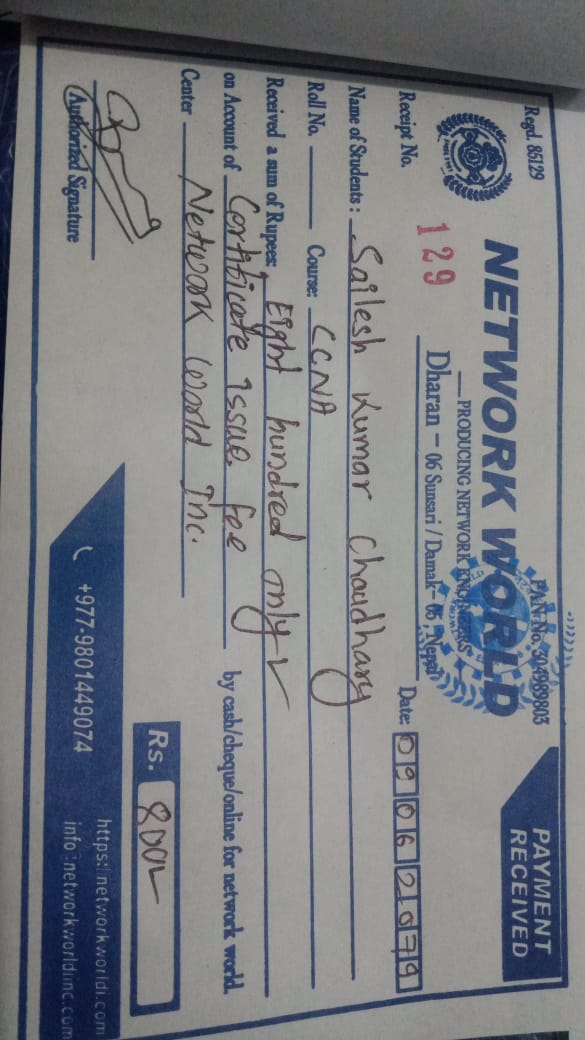 Regd. 85129
PAN No. 304989803
PAYMENT RECEIVED
NETWORK WORLD
PRODUCING NETWORK ENGINEERS
Dharan - 06 Sunsari / Damak- 05, Nepal
129
Receipt No.
Date: 09 06 2079
Name of Students: Sailesh Kumar Chaudhary
Roll No. Course: CCNA
Received a sum of Rupees: Eight hundred only
on Account of Certificate issue fee by cash/cheque/online for network world.
Center Network World Inc.
Rs. 800
Authorized Signature
+977-9801449074
https: networkworldi.com
info networkworldiinc.com